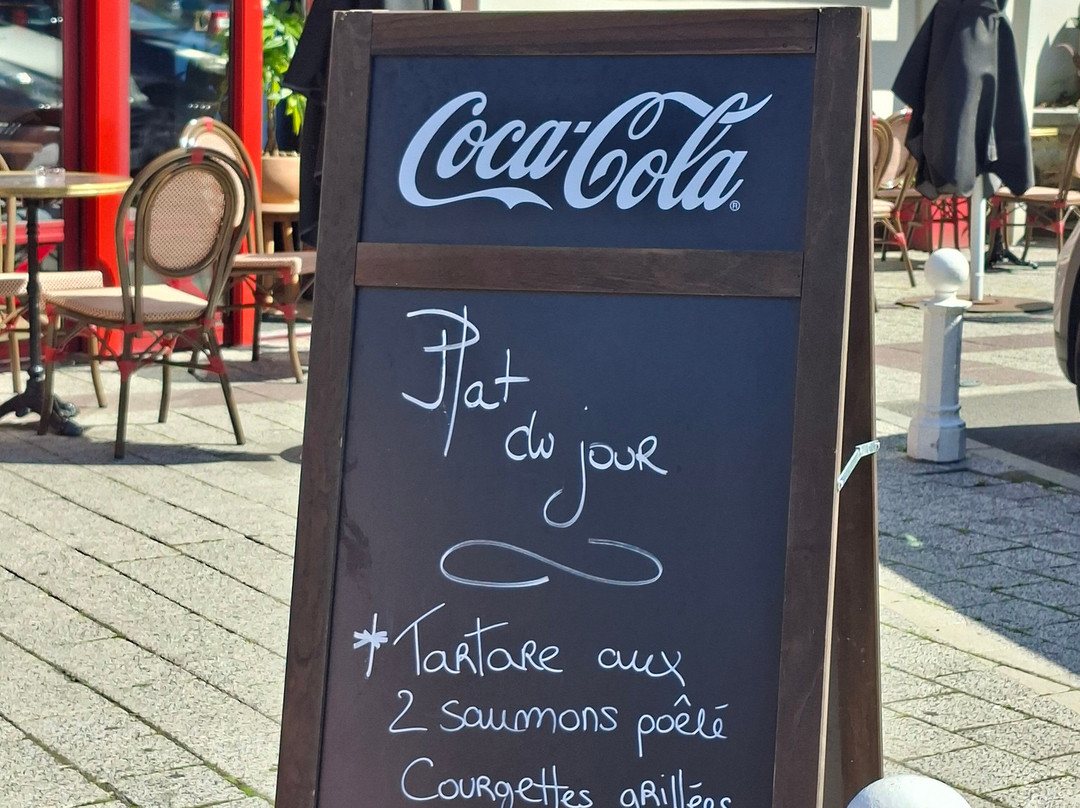 Coca-Cola®
Plat
du jour
* Tartare aux
2 saumons poêlé
Courgettes grillées